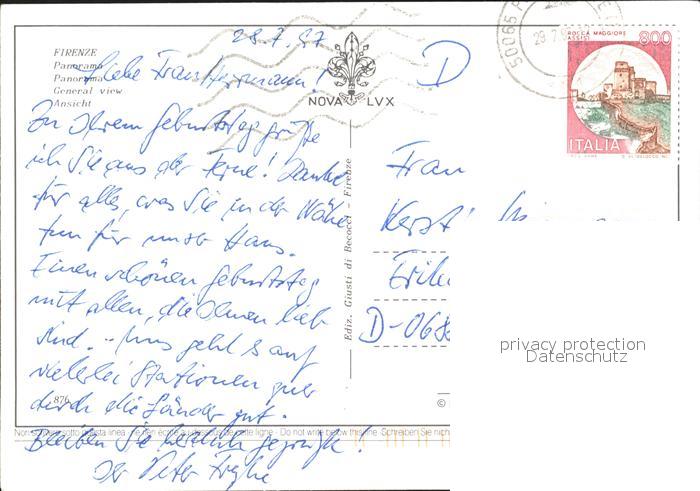 28.7.97
FIRENZE
Panorama
Panorama
General view
Ansicht
Liebe Frau
NOVA LVX
D
50065
29 7
ROCCA MAGGIORE
ASSISI
800
ITALIA
Zu Ihrem Geburtstag grüße
ich Sie aus der Ferne! Danke
für alles, was Sie in der Nähe
tun für unser Haus.
Einen schönen Geburtstag
mit allen, die Ihnen lieb
sind. - Uns geht es auf
vielerlei Stationen quer
durch die Länder gut.
Bleiben Sie herzlich gegrüßt!
Peter
876
Ediz. Giusti di Becocci - Firenze
Frau
D-068
©
privacy protection
Datenschutz
Do not write below this line. Schreiben Sie nich